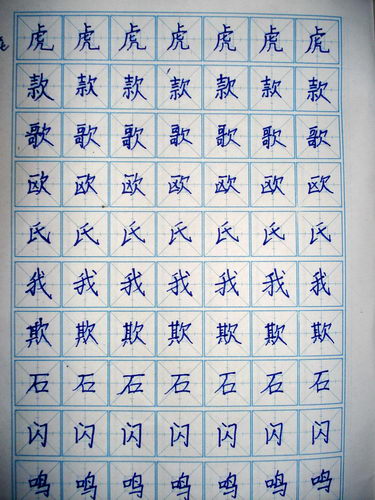 虎虎虎虎虎虎虎
款款款款款款款
歌歌歌歌歌歌歌
欧欧欧欧欧欧欧
氏氏氏氏氏氏氏
我我我我我我我
欺欺欺欺欺欺欺
石石石石石石石
闪闪闪闪闪闪闪
鸣鸣鸣鸣鸣鸣鸣